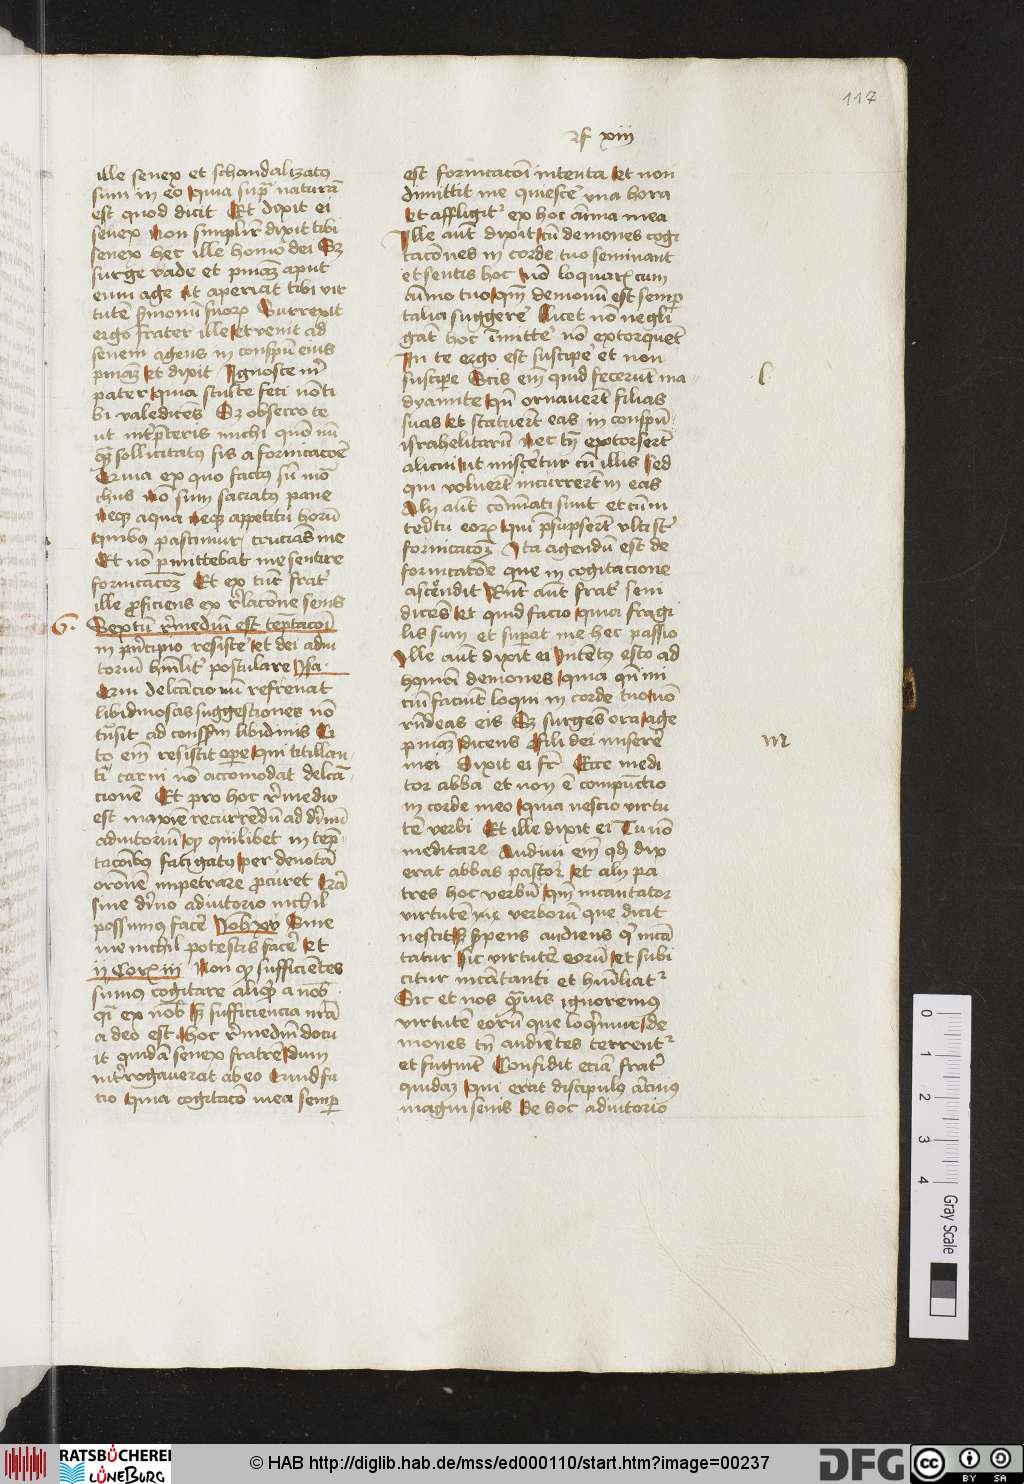 117
xiii
ille senex et schandalizatꝰ
sum in eo quia supra naturā
est quod dicit Et dixit ei
senex non simplīr dixit tibi
senex hec ille homo dei Sꝫ
surge vade et pnīaꝫ aput
eum age ut aperiat tibi vir
tutē sermonū suoꝝ Surrexit
ergo frater ille et venit ad
senem agens in conspū eius
pnīaꝫ et dixit Ignosce mⁱ
pater quia stulte feci nō ti
bi valedicēs Sꝫ obsecro te
ut interpreteris michi quō nū
sollicitatus sis a fornicacōe
Qui ait ex quo factus sū mo
chus nō sum saciatus pane
neqꝫ aqua neqꝫ appetitū horū
quibus pascimur crucias me
Et nō permittebat me sentire
fornicacōꝫ Et ex tūc frater
ille proficiens ex relacōne senis
6. Sextū remediū est temptacōi
in principio resistere et dei adiu
toriū humilit' postulare
delectacio nī refrenat
libidinosas suggestiones nō
ad libidinis Ci
to em̄ resistit operi qui titillan
ti carni nō accomodat delecta
cionē Et pro hoc remedio
est maxīe recurrendū ad dīnū
adiutoriū qꝫ quilibet in temp
tacōibus fatigatus per deuotā
oronē impetrare procuret
sine dīno adiutorio nichil
possumus facere Joh xv Sine
me nichil potestis facere et
ij Corꝝ iij Non qꝫ sufficientes
sumus cogitare aliquid a nob
quasi ex nob Sꝫ sufficiencia nrā
a deo est Hoc remediū docu
it quidā senex fratrē dum
interrogauerat ab eo Quid fa
cio quia cogitacō mea semper
est fornicacōi intenta et non
dimittit me quiescere vna hora
et affligit' ex hoc anima mea
Ille aut dixit cū demones cogi
tacōnes in corde tuo seminant
et sentis hoc nō loquaris cum
animo tuo qm̄ demonū est semper
talia suggerere Licet nō negli
gāt hoc īmittere nō extorquēt
In te ergo est suscipere et non
suscipere Scis em̄ quid fecerūt ma
l
dyanite qn̄ ornauerūt filias
suas et statuerūt eas in conspū
israhelitarū nec tn̄ extorserūt
alicui ut misceretur cū illis sed
qui voluerūt incurrerūt in eas
Alij aut cōminati sunt et cum in
teritu eoꝝ qui presumpserūt vlti sūt
fornicacōꝫ Ita agendū est de
fornicacōne que in cogitacione
ascendit Rn̄t aut frater seni
dicēs et quid facio quia fragi
lis sum et superat me hec passio
Ille aut dixit ei Intentus esto ad
hmōi demones quia qn̄ ini
ciū faciunt loqui in corde tuo nō
rn̄deas eis Sꝫ surgēs ora age
m
pnīaꝫ dicens Fili dei miserere
mei Dixit ei frater Ecce medi
tor abba et non ē compunctio
in corde meo quia nescio virtu
tē verbi Et ille dixit ei Tu nō
meditare Audiui em̄ qꝫ dix
erat abbas pastor et alij pa
tres hoc verbū qm̄ incantator
virtutē verborū que dicit
nescit sꝫ serpens audiens que incā
tatur sic virtutē eorū et subi
citur incātanti et humiliat'
Sic et nos quāuis ignoremus
virtutē eorū que loquimur de
mones tn̄ audientes terrent'
et fugiunt Confidit etiā frater
quidaꝫ qui erat discipulus alicuius
magni senis de hoc adiutorio
0 1 2 3 4
Gray Scale
RATSBÜCHEREI LÜNEBURG
© HAB http://diglib.hab.de/mss/ed000110/start.htm?image=00237
DFG
cc BY SA